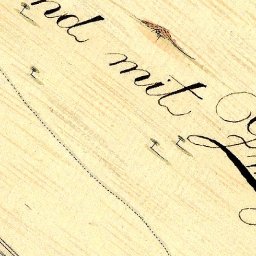 nd mit